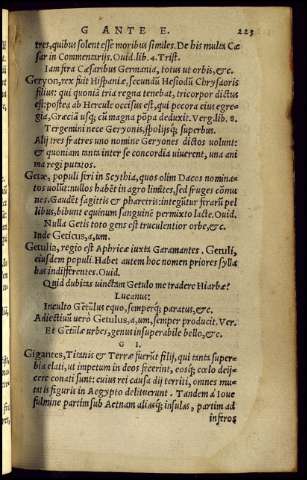 G ANTE E. 223
tres, quibus solent esse moribus similes. De his multa Cæ
sar in Commentarijs. Ouid. lib. 4. Trist.
Iam fera Cæsaribus Germania, totus ut orbis, &c.
Geryon, rex fuit Hispaniæ, secundū Hesiodū Chrysaoris
filius: qui quoniā tria regna tenebat, tricorpor dictus
est: postea ab Hercule occisus est, qui pecora eius egre-
gia, Græciā usq; cū magna pōpa deduxit. Verg. lib. 8.
Tergemini nece Geryonis, spolijsq; superbus.
Alij tres fratres uno nomine Geryones dictos uolunt:
& quoniam tanta inter se concordia uiuerent, una ani
ma regi putatos.
Getæ, populi feri in Scythia, quos olim Dacos nomina-
tos uolūt: nullos habēt in agro limites, sed fruges cōmu
nes. Gaudēt sagittis & pharetris: integūtur ferarū pel
libus, bibunt equinum sanguinē permixto lacte. Ouid.
Nulla Getis toto gens est truculentior orbe, &c.
Inde Geticus, a, um.
Getulia, regio est Aphricæ iuxta Garamantes. Getuli,
eiusdem populi. Habet autem hoc nomen priores sylla
bas indifferentes. Ouid.
Quid dubitas uinctam Getulo me tradere Hiarbæ?
Lucanus:
Inculto Getulus equo, semperq; paratus, &c.
Adiectiuū uerò Getulus, a, um, semper producit. Ver.
Et Getulæ urbes, genus insuperabile bello, &c.
G I.
Gigantes, Titanis & Terræ fuerūt filij, qui tanta super-
bia elati, ut impetum in deos fecerint, eosq; cœlo deij-
cere conati sunt: cuius rei causa dij territi, omnes mu-
tatis figuris in Aegypto delituerunt. Tandem à Ioue
fulmine partim sub Aetnam aliasq; insulas, partim ad
inferos